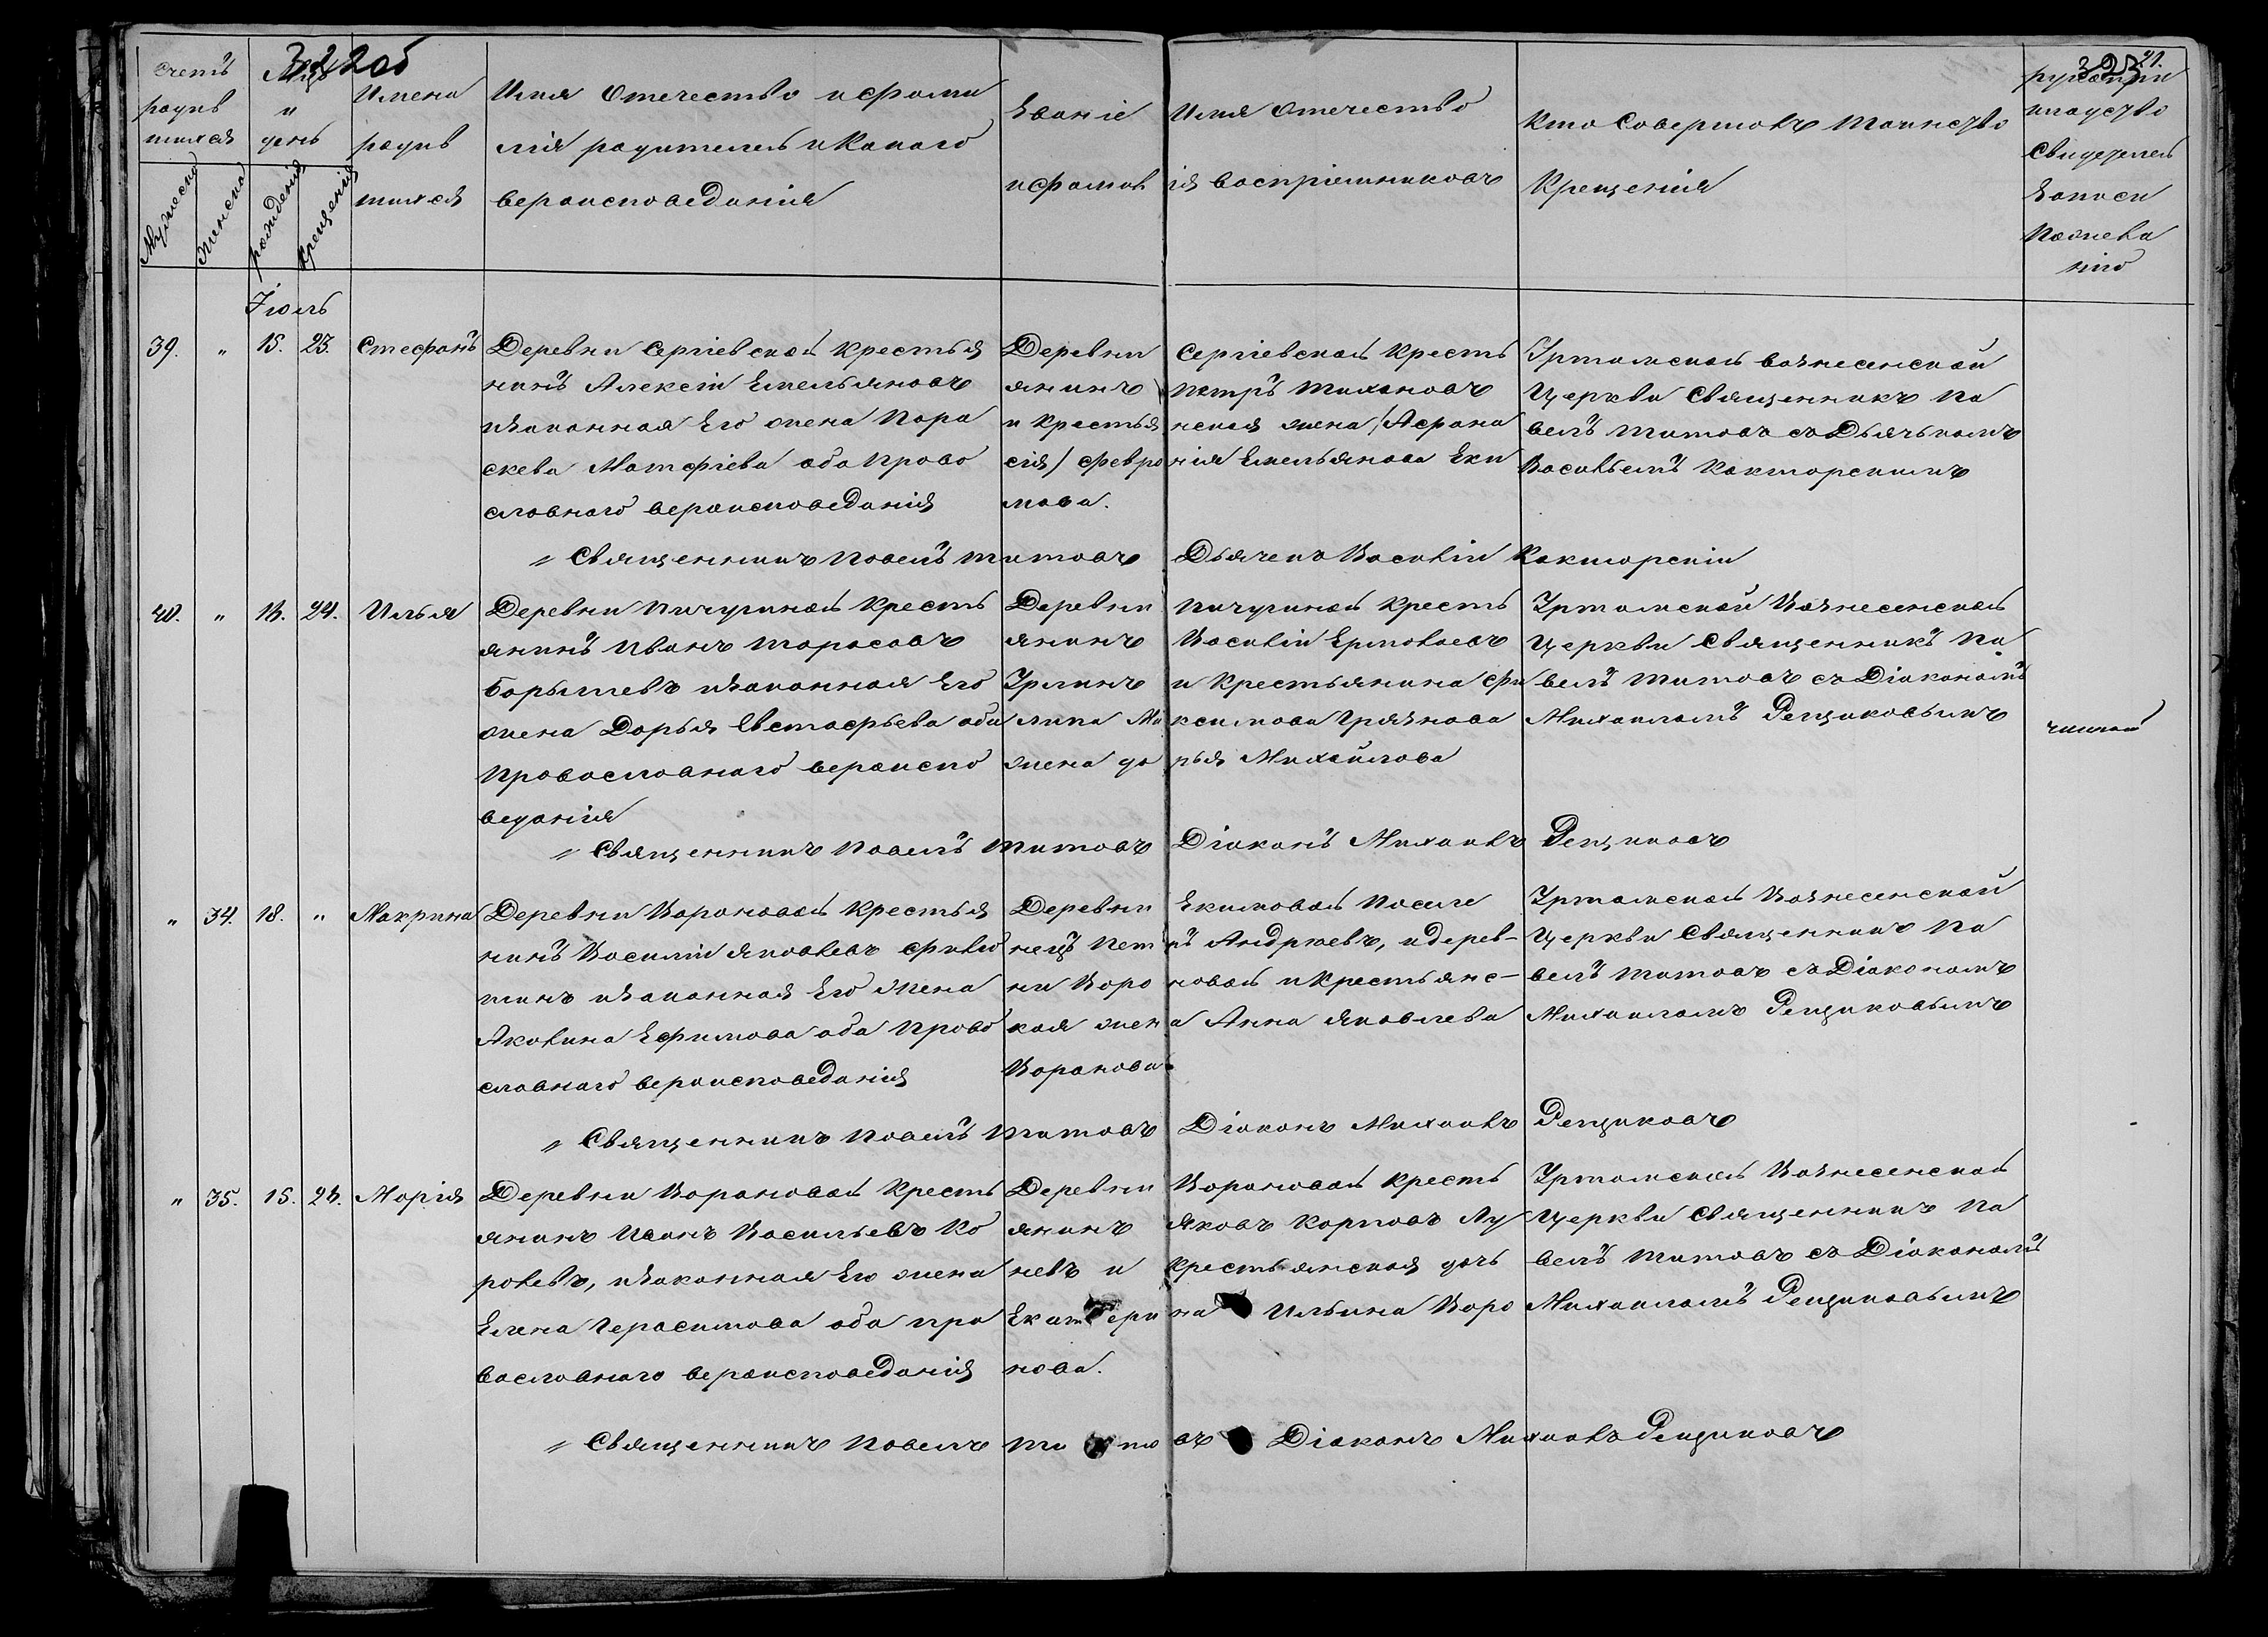 322 об
323
21.
счетъ родив шихся
Мцъ и день
Имена родив шихся
Имя Отечество и фами
лія родителей и Какого
вероисповеданія
Званіе Имя Отечество
и фамилія воспріемниковъ
Кто Совершалъ Таинство
Крещенія
рукопри кладство Свидетелей Записи По желанію
Мужеска
женска
рожденія
Крещенія
Іюль
39. " 15. 23. Стефанъ
Деревни Сергіевской Крестья
нинъ Алексій Емельяновъ
и Законная Его жена Пара
скева Матфіева оба Право
славного вероисповеданія
Деревни Сергіевской Кресть
янинъ Петръ Тихановъ
и Крестьянская жена (Афана
сія) Февронія Емельянова Еки
мова.
Уртамской вознесенской
Церкви Священникъ Па
велъ Титовъ съ Дьячькомъ
Васильемъ Какторскимъ
" Священникъ Павелъ Титовъ Дьячекъ Василій Какторскій
40. " 18. 24. Илья
Деревни Пичугиной Кресть
янинъ Иванъ Тарасовъ
Барышевъ и Законная Его
жена Дарья Евстафьева оба
Православного вероиспо
веданія
Деревни Пичугиной Кресть
янинъ Василій Ермолаевъ
Урлинъ и Крестьянина Фи
липа Максимова Грязнова
жена Дарья Михайлова
Уртамской Вознесенской
Церкви Священникъ Па
велъ Титовъ съ Діакономъ
Михаиломъ Рещиковымъ
" Священникъ Павелъ Титовъ Діаконъ Михаилъ Рещиковъ
" 34. 18. " Макрина
Деревни Вороновой Крестья
нинъ Василій Яковлевъ Фили
шинъ и Законная Его жена
Акилина Ефимова оба Право
славнаго вероисповеданія
Деревни Екимовой Поселе
нецъ Петръ Андреевъ, и дерев-
ни Вороновой и Крестьянс-
кая жена Анна Яковлева
Воронова.
Уртамской Вознесенской
Церкви Священникъ Па
велъ Титовъ съ Діакономъ
Михаиломъ Рещиковымъ
" Священникъ Павелъ Титовъ Діаконъ Михаилъ Рещиковъ
" 35. 15. 23. Марія
Деревни Вороновой Кресть
янинъ Иванъ Васильевъ Ко
ролевъ, и Законная Его жена
Елена Герасимова оба пра
вославнаго вероисповеданія
Деревни Вороновой Кресть
янинъ Яковъ Карповъ Лу
невъ и Крестьянская дочь
Екатерина Ильина Воро
нова.
Уртамской Вознесенской
Церкви Священникъ Па
велъ Титовъ съ Діакономъ
Михаиломъ Рещиковымъ
" Священникъ Павелъ Титовъ Діаконъ Михаилъ Рещиковъ